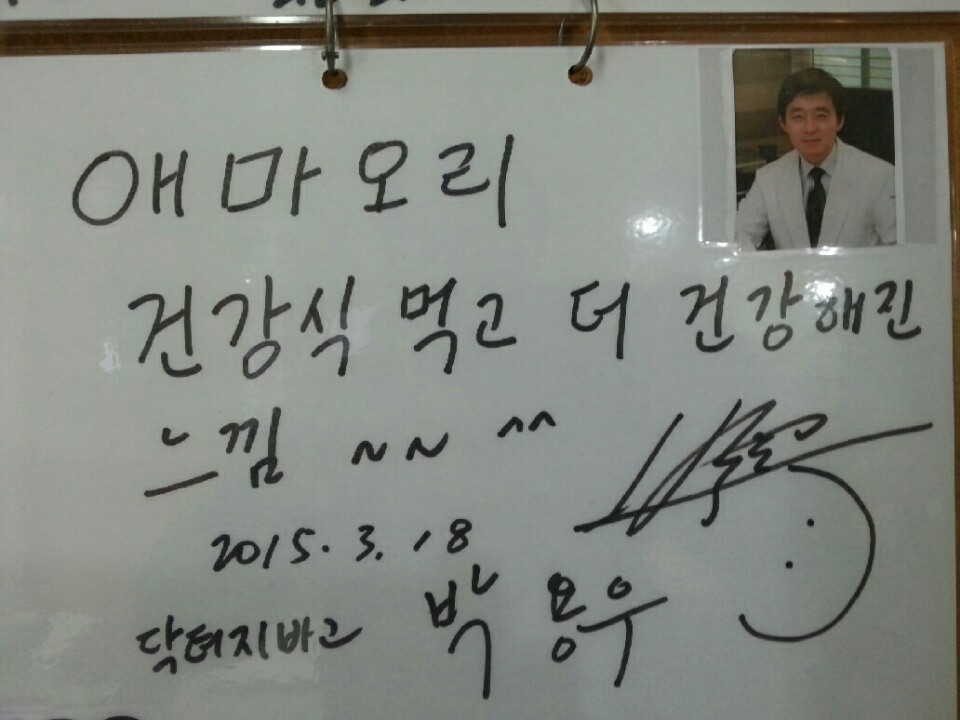 애마오리
건강식 먹고 더 건강해진
느낌 ~~ ^^
2015. 3. 18
닥터지바고 박용우